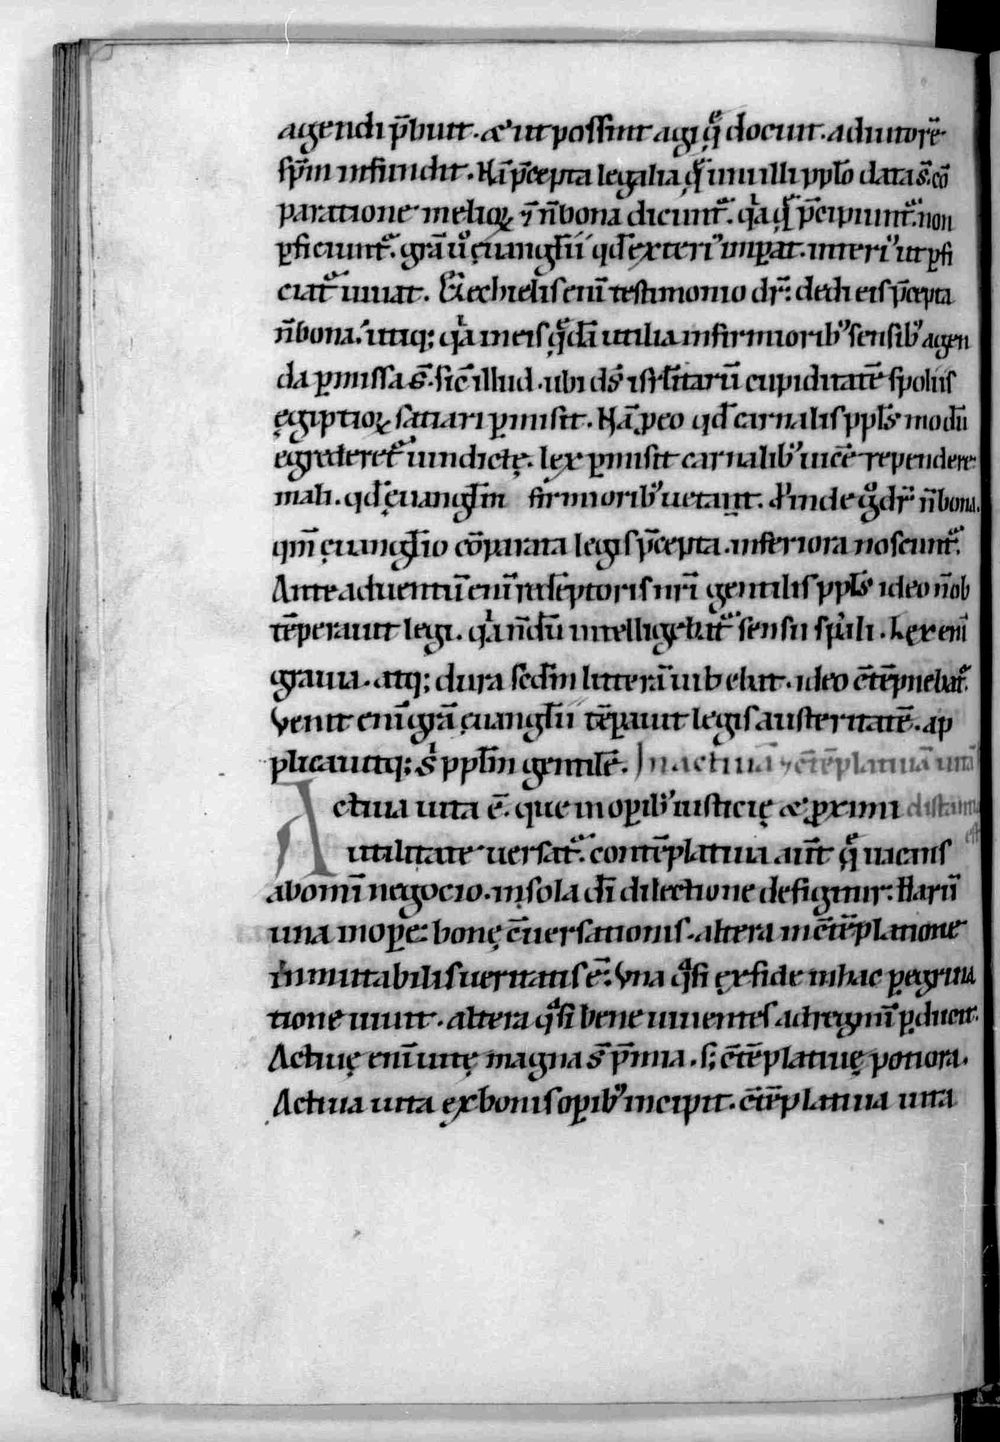 agendi p̄buit. & ut possint agi q̨̄ docuit. adiutorē
sp̄m infundit. Nā p̄cepta legalia q̨̄ ueteri illi pp̄lo data s̄. cō
paratione melioꝝ ⁊ n̄bona dicunt᷑. qͥa q̨̄ p̄cipiunt᷑. non
ꝑficiunt᷑. gr̄a uͦ euangl̄ii qd̄ exteriꝰ imꝑat. interiꝰ ut ꝑfi
ciat᷑ iuuat. Ezechielis enī testimonio dr̄: dedi eis p̄cepta
n̄bona. utiq; qͥa in eis q̨̄dā utilia infirmioribꝰ sensibꝰ agen
da ꝑmissa s̄. sic̄ illud. ubi ds̄ isrl̄itarū cupiditatē spoliis
ęgiptioꝝ satiari ꝑmisit. Nā ꝓ eo qd̄ carnalis ppl̄s modū
egrederet᷑ uindictę. lex ꝑmisit carnalibꝰ uicē rependere
mali. qd̄ ęuangl̄m firmioribꝰ uetauit. Proinde qͦ dr̄ n̄bona.
qm̄ ęuangl̄io cōparata legis p̄cepta. inferiora noscunt᷑.
Ante aduentū enī redēptoris nr̄i gentilis ppl̄s ideo n̄ ob
tēperauit legi. qͥa n̄dū intelligebat᷑ sensu sp̄ili. Lex enī
grauia. atq; dura scd̄m litterā iubebat. ideo c̄tēpnebat᷑.
Venit enī gr̄a ęuangl̄ii tēꝑauit legis austeritatē. ap
plicauitq; sͥ ppl̄m gentilē. In actiuā ⁊ c̄tēplatiuā uitā
Actiua uita ē. que in oꝑibꝰ iusticię & ꝓximi distantia
utilitate uersat᷑. contēplatiua aūt q̨̄ uacans est
ab omī negocio. in sola dī dilectione defigitur: Harū
una in oꝑe bonę c̄uersationis. altera in c̄tēplatione
inmutabilis ueritatis ē: Vna q̄si ex fide in hac ꝑegrina
tione uiuit. altera q̄si bene uiuentes ad regnū ꝑducit.
Actiuę enī uitę magna s̄ p̄mia. s; c̄tēplatiuę potiora.
Actiua uita ex bonis oꝑibꝰ incipit. c̄tēplatiua uita